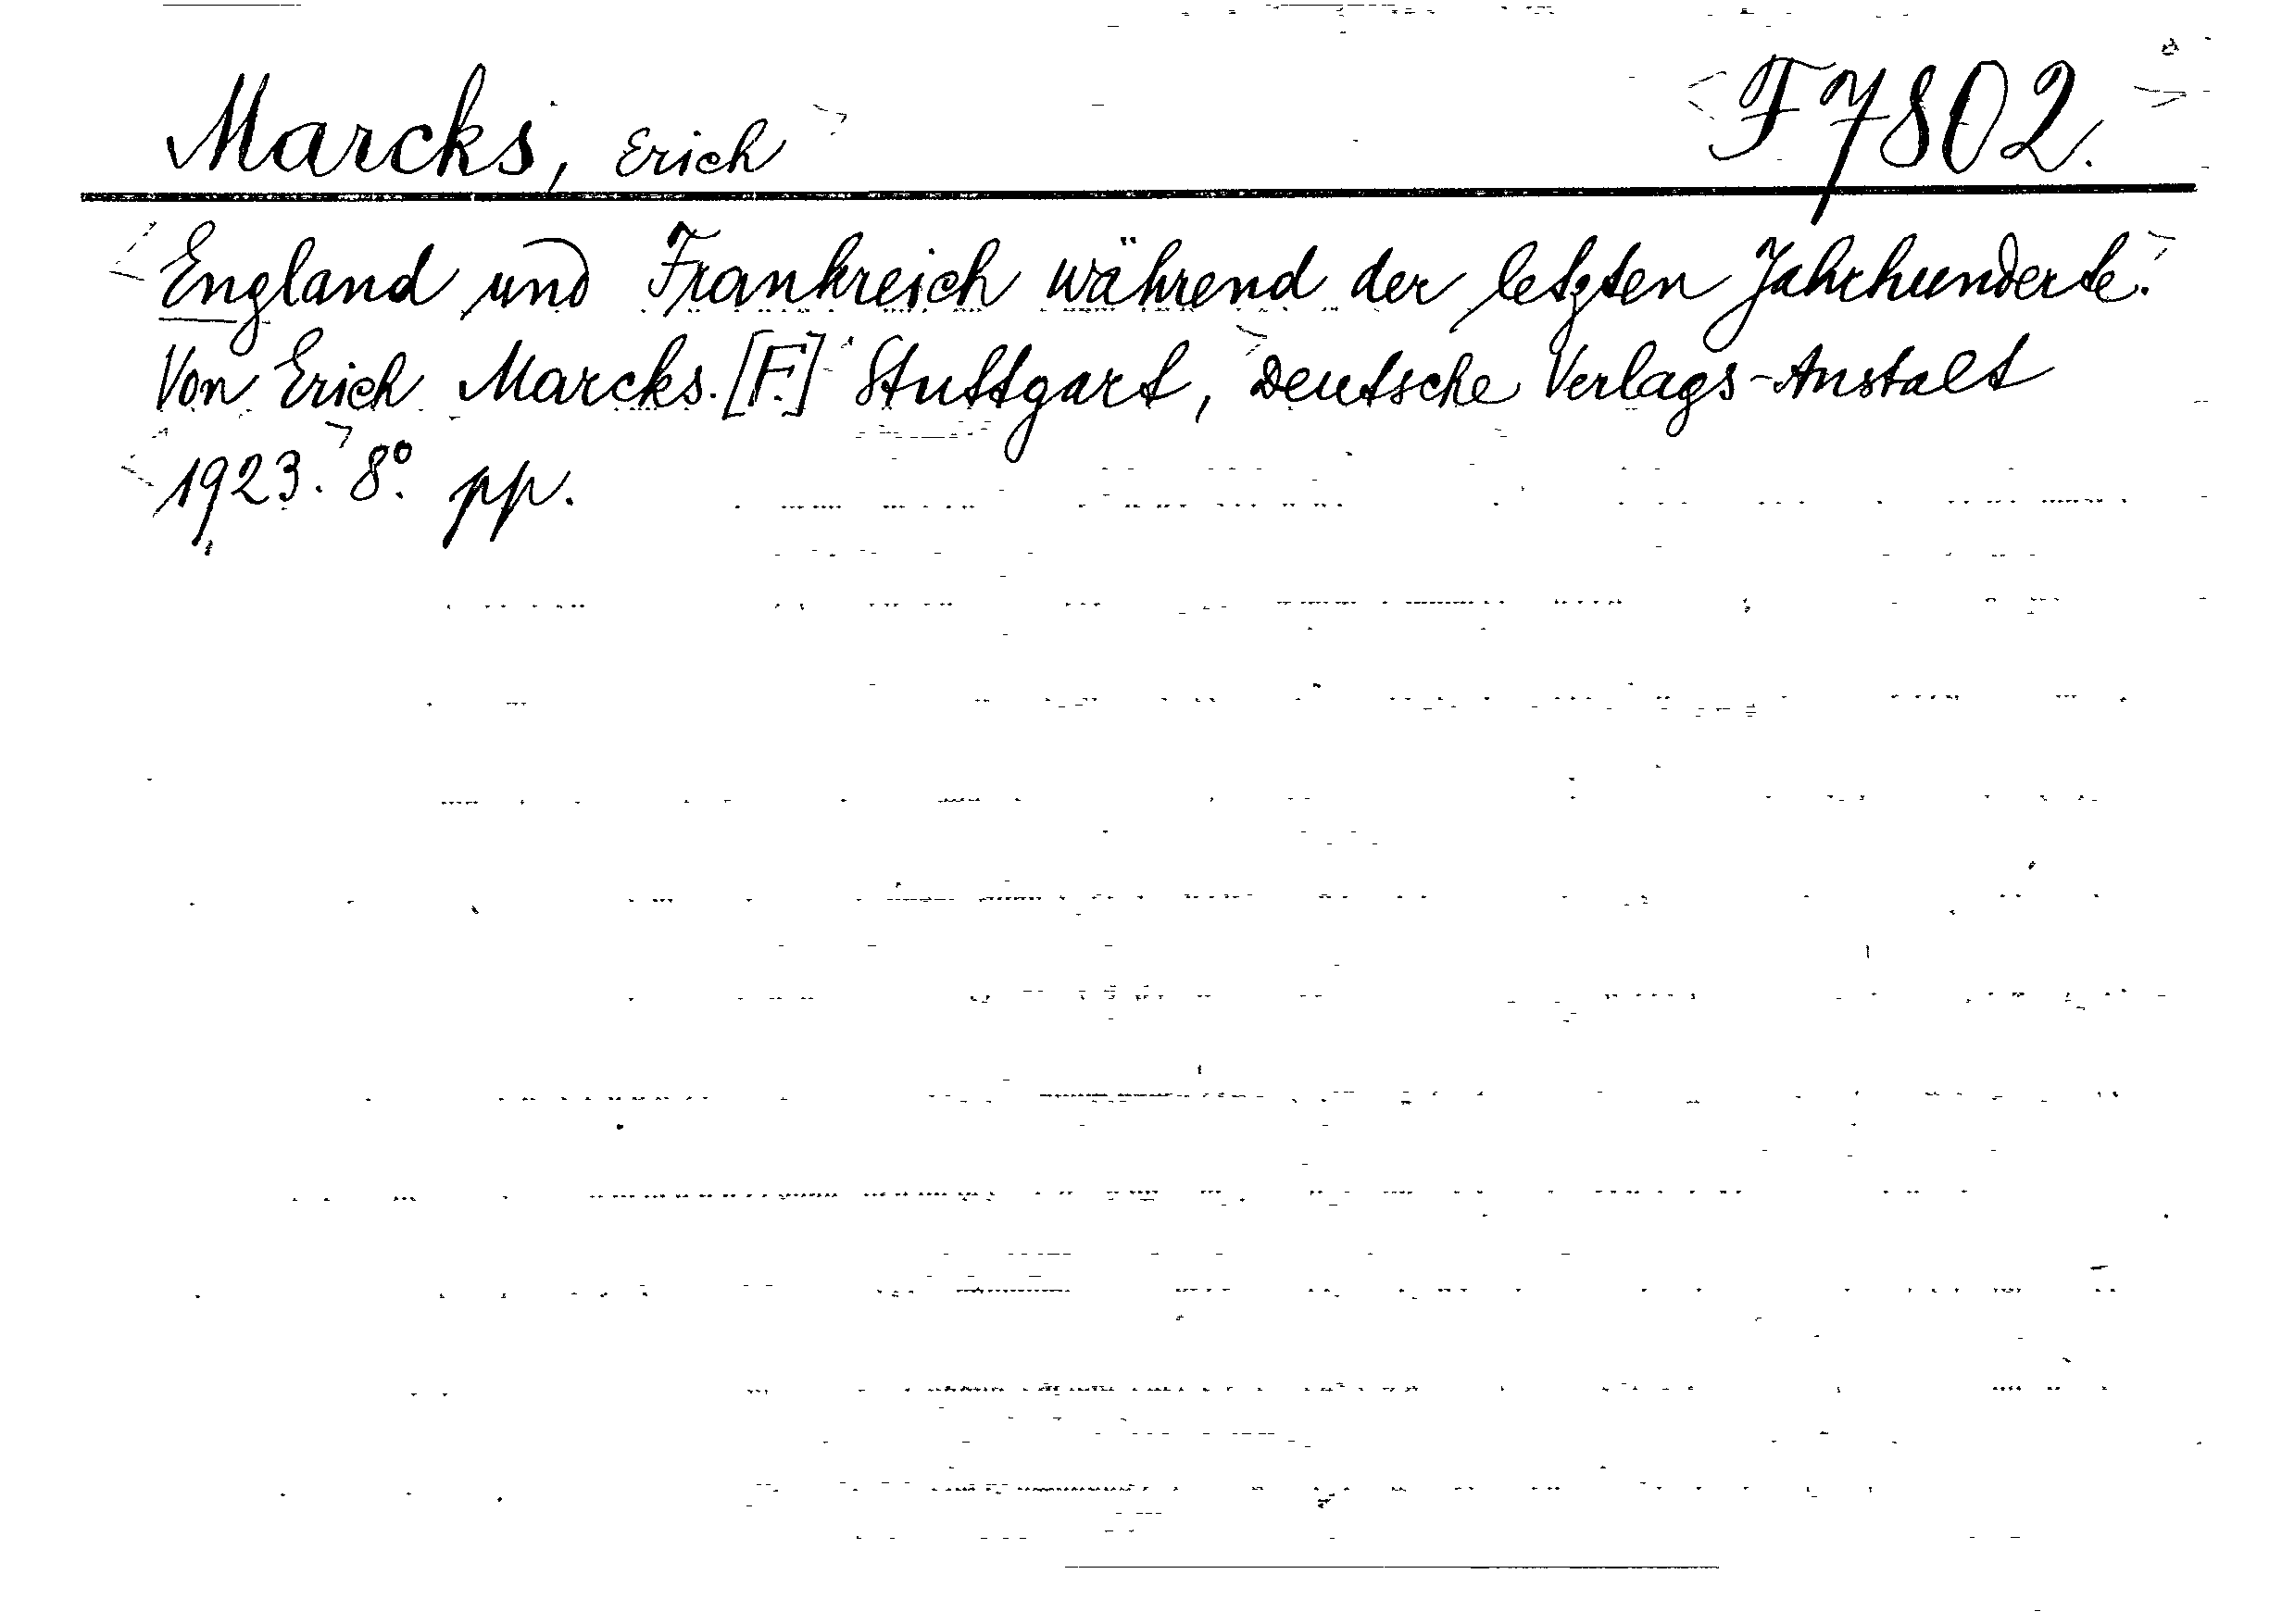 Marcks, Erich F 7802.
England und Frankreich während der letzten Jahrhunderte.
Von Erich Marcks. [F.] Stuttgart, Deutsche Verlags-Anstalt
1923. 8°. pp.